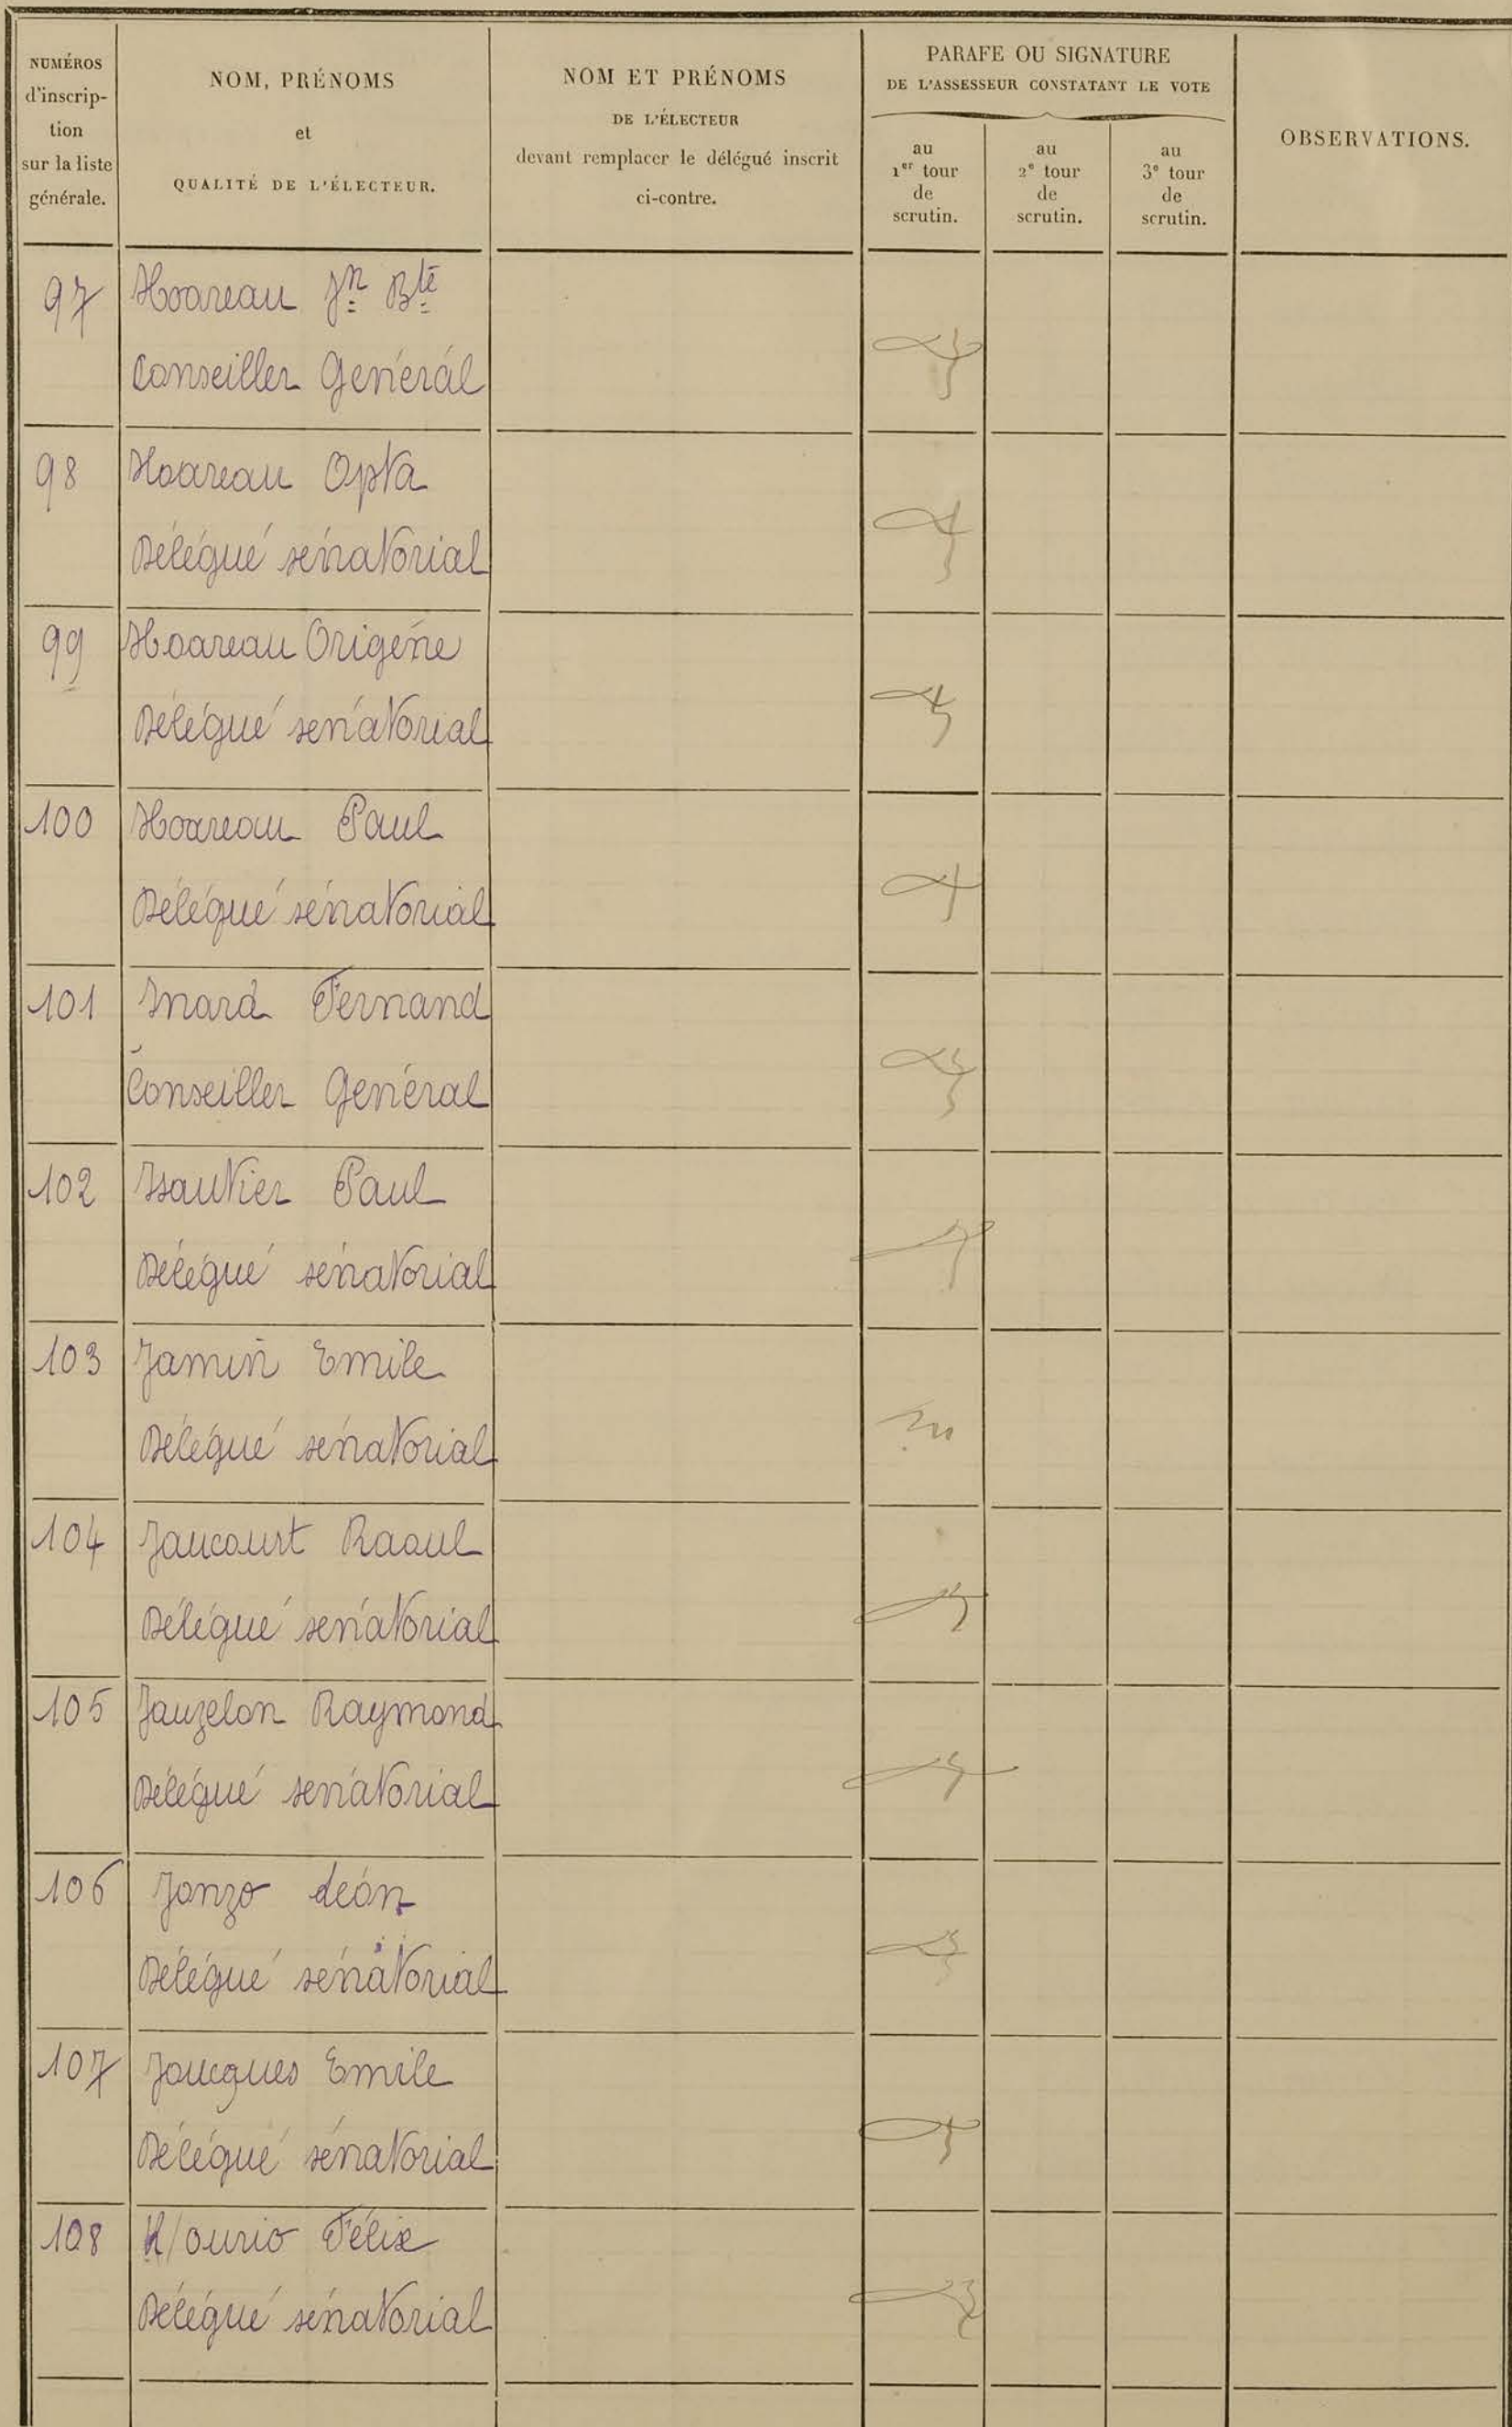 NUMÉROS
d'inscrip-
tion
sur la liste
générale.
NOM, PRÉNOMS
et
QUALITÉ DE L'ÉLECTEUR.
NOM ET PRÉNOMS
DE L'ÉLECTEUR
devant remplacer le délégué inscrit
ci-contre.
PARAFE OU SIGNATURE
DE L'ASSESSEUR CONSTATANT LE VOTE
au
1er tour
de
scrutin.
au
2e tour
de
scrutin.
au
3e tour
de
scrutin.
OBSERVATIONS.
97 Hoareau Jn Bte
Conseiller Général
98 Hoareau Opta
Délégué sénatorial
99 Hoareau Origène
Délégué sénatorial
100 Hoareau Paul
Délégué sénatorial
101 Inard Fernand
Conseiller Général
102 Isautier Paul
Délégué sénatorial
103 Jamin Emile
Délégué sénatorial
104 Jaucourt Raoul
Délégué sénatorial
105 Jauzelon Raymond
Délégué sénatorial
106 Jonzo Léon
Délégué sénatorial
107 Joucques Emile
Délégué sénatorial
108 K/ourio Félix
Délégué sénatorial